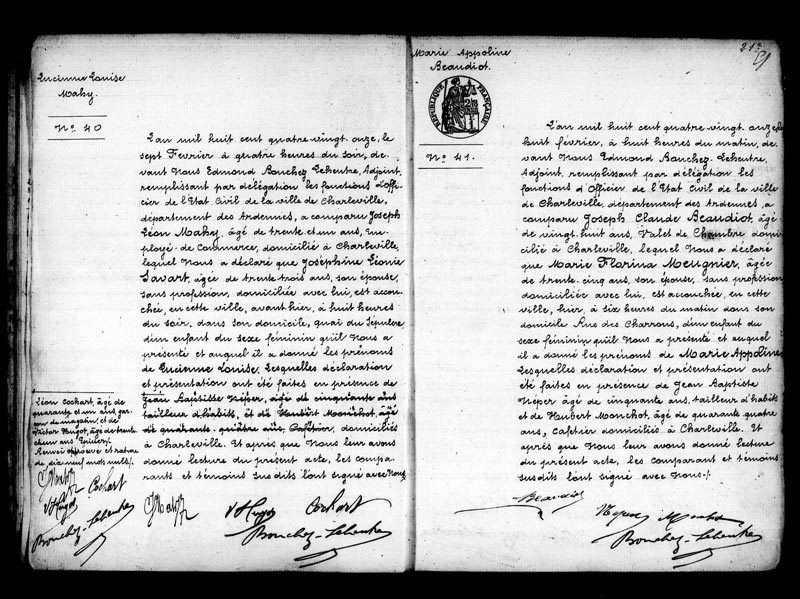 Lucienne Louise
Mahy.
Nº 40
L'an mil huit cent quatre-vingt-onze, le
sept Février à quatre heures du soir, de-
vant Nous Edmond Bouchez-Leheutre, Adjoint,
remplissant par délégation les fonctions d'Offi-
cier de l'Etat Civil de la ville de Charleville,
département des Ardennes, a comparu Joseph
Léon Mahy, âgé de trente et un ans, Em-
ployé de Commerce, domicilié à Charleville,
lequel Nous a déclaré que Joséphine Léonie
Savart, âgée de trente-trois ans, son épouse,
sans profession, domiciliée avec lui, est accou-
chée, en cette ville, avant-hier, à huit heures
du soir, dans son domicile, quai du Sépulcre,
d'un enfant du sexe féminin qu'il Nous a
présenté et auquel il a donné les prénoms
de Lucienne Louise. Lesquelles déclaration
et présentation ont été faites en présence de
Jean Baptiste Néper, âgé de cinquante ans
tailleur d'habits, et de Hubert Monchot, âgé
de quarante-quatre ans, Cafetier, domiciliés
à Charleville. Et après que Nous leur avons
donné lecture du présent acte, les compa-
rant et témoins susdits l'ont signé avec Nous.
Léon Cochart, âgé de
quarante et un ans, gar-
çon de magasin, et de
Victor Hugot, âgé de trente
et un ans
Renvoi approuvé et rature
de dix neuf mots nuls
Mahy Cochart
V Hugot
Bouchez-Leheutre
Mahy V Hugot Cochart
Bouchez-Leheutre
213
Marie Appoline
Beaudiot.
RÉPUBLIQUE FRANÇAISE
Nº 41.
L'an mil huit cent quatre-vingt-onze, le
huit février, à huit heures du matin, de-
vant Nous Edmond Bouchez-Leheutre,
Adjoint, remplissant par délégation les
fonctions d'Officier de l'Etat Civil de la ville
de Charleville, département des Ardennes, a
comparu Joseph Claude Beaudiot, âgé
de vingt-huit ans, Valet de Chambre, domi-
cilié à Charleville, lequel Nous a déclaré
que Marie Florina Meugnier, âgée
de trente-cinq ans, son épouse, sans profession
domiciliée avec lui, est accouchée, en cette
ville, hier, à six heures du matin dans son
domicile Rue des Charrons, d'un enfant du
sexe féminin qu'il Nous a présenté et auquel
il a donné les prénoms de Marie Appoline
Lesquelles déclaration et présentation ont
été faites en présence de Jean Baptiste
Néper âgé de cinquante ans, tailleur d'habits
et de Hubert Monchot, âgé de quarante quatre
ans, Cafetier domiciliés à Charleville. Et
après que Nous leur avons donné lecture
du présent acte, les comparant et témoins
susdits l'ont signé avec Nous.
Beaudiot
Néper Monchot
Bouchez-Leheutre